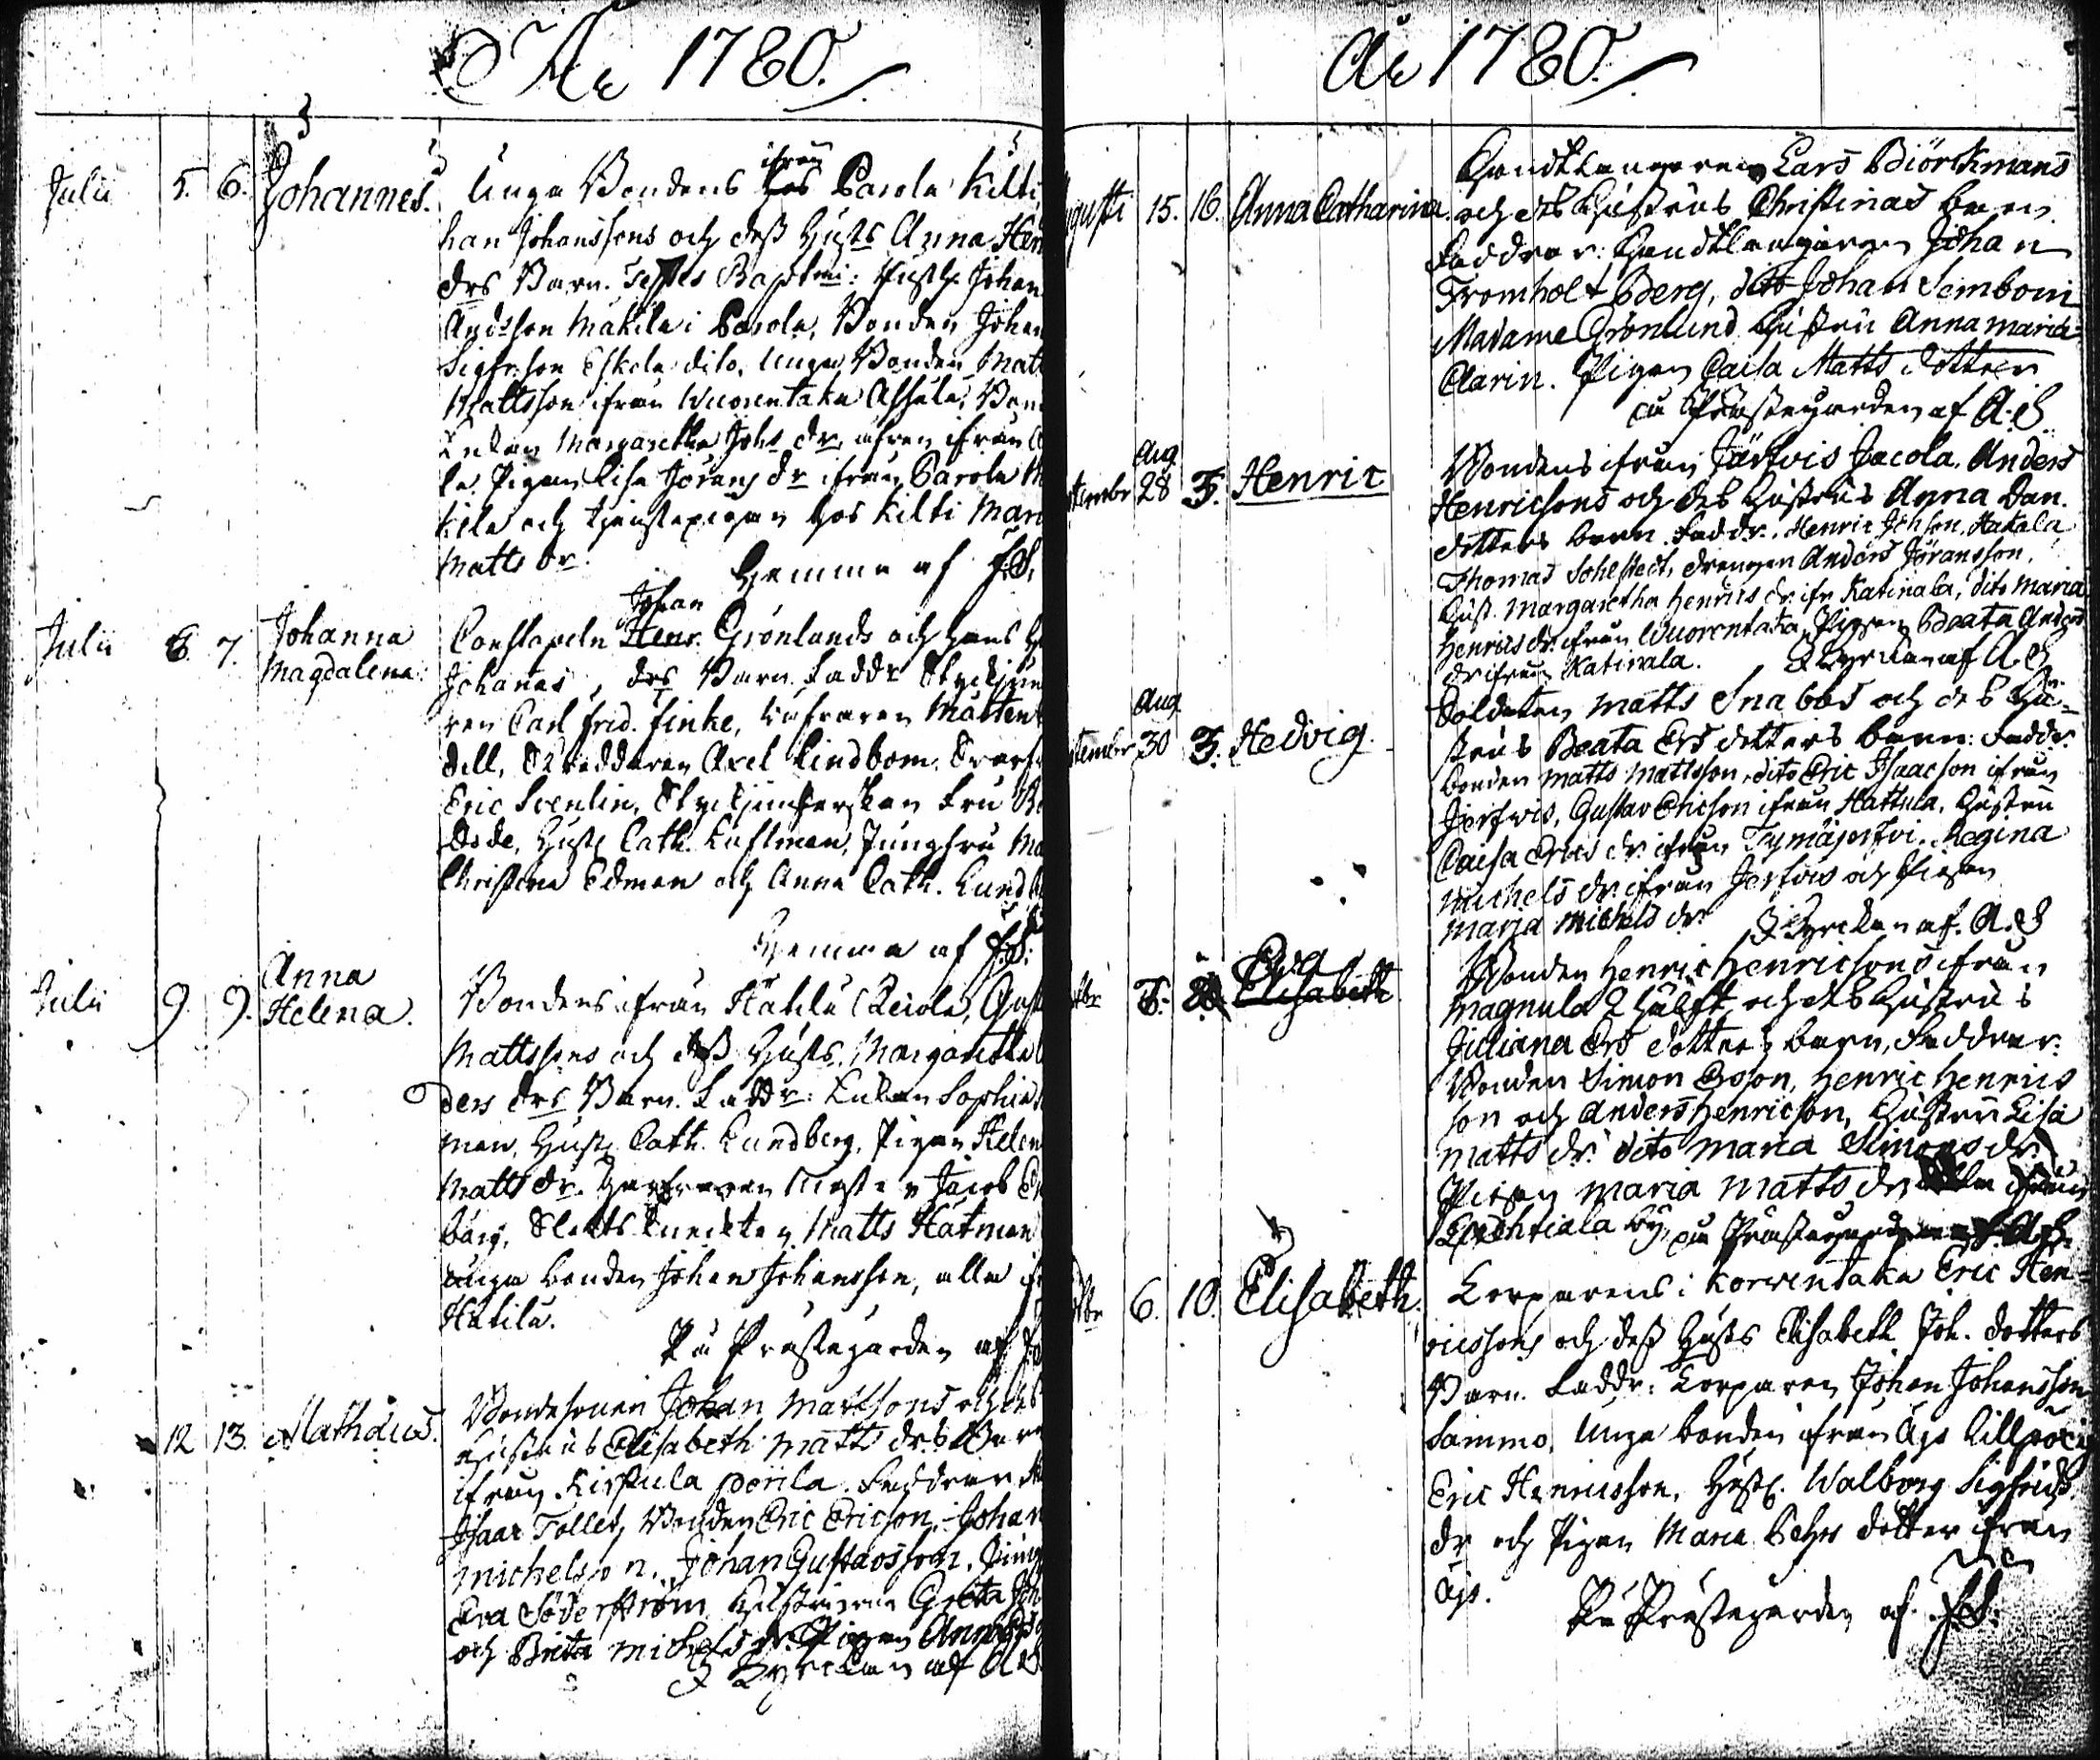 Åhr 1780.
Julii 5. 6. Johannes. Unga Bondens ifrån Parola Kilti
han Johanssons och deß Hust: Anna Hen
drs Barn. Testes Baptmi: Hust: Johan
Andsson Mäkilä i Parola, Bonden Johan
Sigfrsson Eskola dito, Unga Bonden Matt
Mattsson ifrån Wuorentaka Asshela, Bon
Enkan Margaretha Johs dr, äfven ifrån
la, Pigan Lisa Jörans dr ifrån Parola M
kilä och tjenstepigan hos Kilti Mari
Matts dr.
Hemma af J.S.
Julii 6. 7. Johanna Magdalena. Constapeln Johan Grönlunds och hans H
Johanas, drs Barn. Faddr Styckjun
ren Carl Frid. Finke, Kofraren Mårten
dell, Skräddaren Axel Lindbom, Svarf
Eric Svenlin, Styckjunkerskan Fru
Dode, Hust: Cath. Luftman, Jungfru Ma
Christina Edman och Anna Cath. Lund
Hemma af J.S.
Julii 9. 9. Anna Helena. Bondens ifrån Hätilä Reiola, Gust
Mattssons och deß Hust: Margaretha
ders drs Barn. Faddr: Enkan Sophia
man, Hust: Cath. Lundberg, Pigan Helen
Matts dr. Garfvaren Mäster Jacob
berg, Slotts knechten Matts Hätman
unga bonden Johan Johansson, alla if
Hätilä.
På Prästegården af J.S.
12 13. Mathæus. Bondesonen Johan Mattsons och deß
hustrus Elisabeth Matts drs Barn
ifrån Kirstula Pörilä. Faddrar
Isaac Tollet, Bonden Eric Ericson, Johan
Michelsson, Johan Gustavsson, Jung
Eva Söderström, Hustrurna Greta Joh
och Brita Michels dr. Pigan Anna
I Kyrckan af A.S.
Åhr 1780.
Augusti 15. 16. Anna Catharina. Handtlangaren Lars Biörckmans
och deß Hustrus Christinas barn.
Faddrar: Handtlangaren Johan
Fromholt Öberg, dito Johan Semboni
Madame Grönlund Hustru Anna Maria
Clarin. Pigan Caisa Matts dotter
på Prästegården af A.S.
Septembr Aug 28 3. Henric Bondens ifrån Järfvis Jacola, Anders
Henricsons och deß Hustrus Anna Dan.
dotters barn. Faddr. Henric Johson, Hakala
Thomas Sohlstedt, drengen Anders Jöransson,
Hust. Margaretha Henrics dr ifr Katinala, dito Maria
Henrics dr ifrån Wuorentaka, Pigan Beata Anders
dr ifrån Katinala. I Kyrckan af A.S.
September Aug 30 3. Hedvig. Soldaten Matts Snabbs och deß Hu-
strus Beata Ers dotters barn: Faddr.
bonden Matts Mattsson, dito Eric Isaacson ifrån
Jerfwis, Gustav Ericson ifrån Hattula, Hustru
Caisa Erics dr ifrån Tymäjerfvi. Regina
Michels dr ifrån Jerfvis och Pigan
Maria Michels dr. I Kyrckan af. A.S.
Eva Elisabeth Bonden Henric Henricsons ifrån
Magnula 2 hälft och deß Hustrus
Juliana Ers dotters barn, Faddrar:
Bonden Simon Ersson, Henric Henrics
son och Anders Henricson, Hustru Lisa
Matts dr. dito Maria Simons dr.
Pigan Maria Matts dr ifrån
by, på Prästegården af A.S.
6. 10. Elisabeth. Torparens i Korventaka Eric Hen-
ricssons och deß Husts Elisabeth Joh. dotters
Barn. Faddr: Torparen Johan Johansson
Sammo, Unga bonden ifrån Äjs Killpör
Eric Henricsson, Hust: Walborg Sigfrids
dr och Pigan Maria Pehrs dotter ifrån
Äjs.
På Prästegården af J.S.